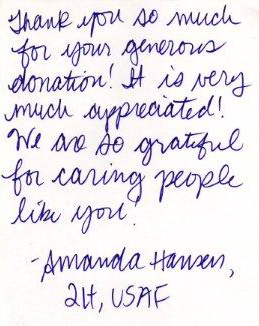 Thank you so much
for your generous
donation! It is very
much appreciated!
We are so grateful
for caring people
like you!
-Amanda Hansen,
2Lt, USAF